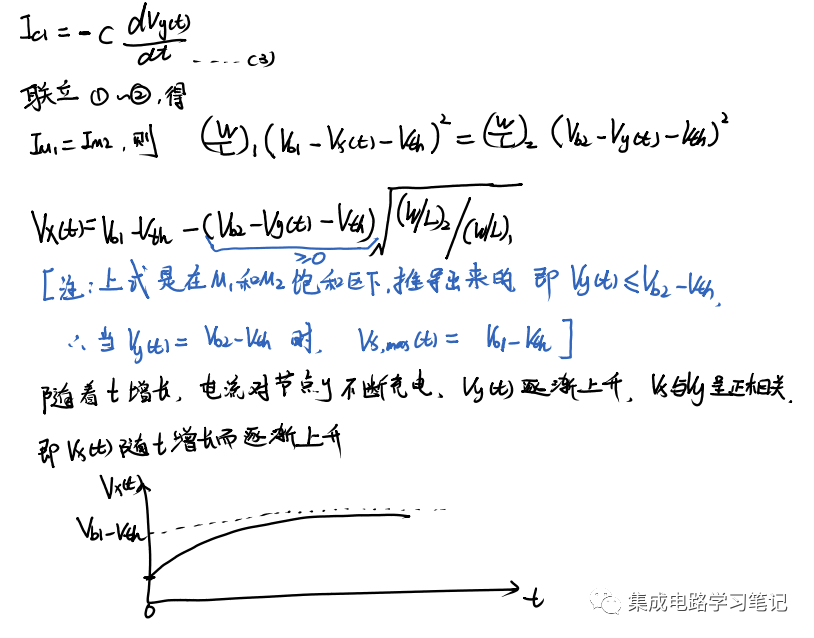 I_{C1} = -C \frac{dV_y(t)}{dt} ...... (3)
联立 ① ~ ②, 得
I_{M1} = I_{M2}, 则 (\frac{W}{L})_1 (V_{b1} - V_s(t) - V_{th})^2 = (\frac{W}{L})_2 (V_{b2} - V_y(t) - V_{th})^2
V_x(t) = V_{b1} - V_{th} - (V_{b2} - V_y(t) - V_{th}) \sqrt{(W/L)_2 / (W/L)_1}
≥0
[注: 上式是在M_1和M_2饱和区下, 推导出来的 即 V_y(t) ≤ V_{b2} - V_{th},
∴ 当 V_y(t) = V_{b2} - V_{th} 时, V_{s,max}(t) = V_{b1} - V_{th} ]
随着 t 增长, 电流对节点y不断充电, V_y(t) 逐渐上升, V_s与V_y呈正相关.
即 V_s(t) 随 t 增长而逐渐上升
V_x(t)
V_{b1} - V_{th}
0
t
集成电路学习笔记